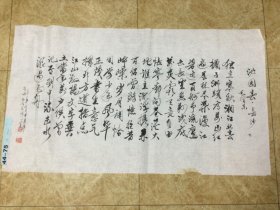 沁园春 长沙
毛泽东
独立寒秋湘江北去
橘子洲头看万山红
遍层林尽染漫江
碧透百舸争流鹰击
长空鱼翔浅底
万类霜天竞自由
怅寥廓问苍茫大
地谁主沉浮携来
百侣曾游忆往昔
峥嵘岁月稠恰
同学少年风华
正茂书生意气
挥斥方遒指点
江山激扬文字粪
土当年万户侯曾
记否到中流击水
浪遏飞舟